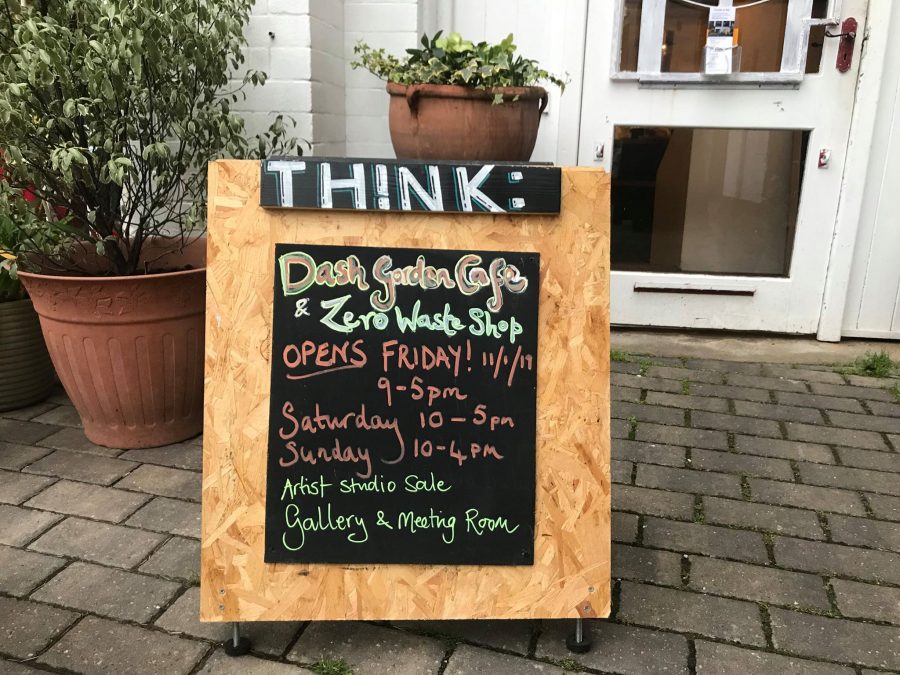 TH!NK:
Dash Garden Cafe
& Zero Waste Shop
OPENS FRIDAY! 11/1/19
9-5pm
Saturday 10-5pm
Sunday 10-4pm
Artist studio Sale
Gallery & Meeting Room